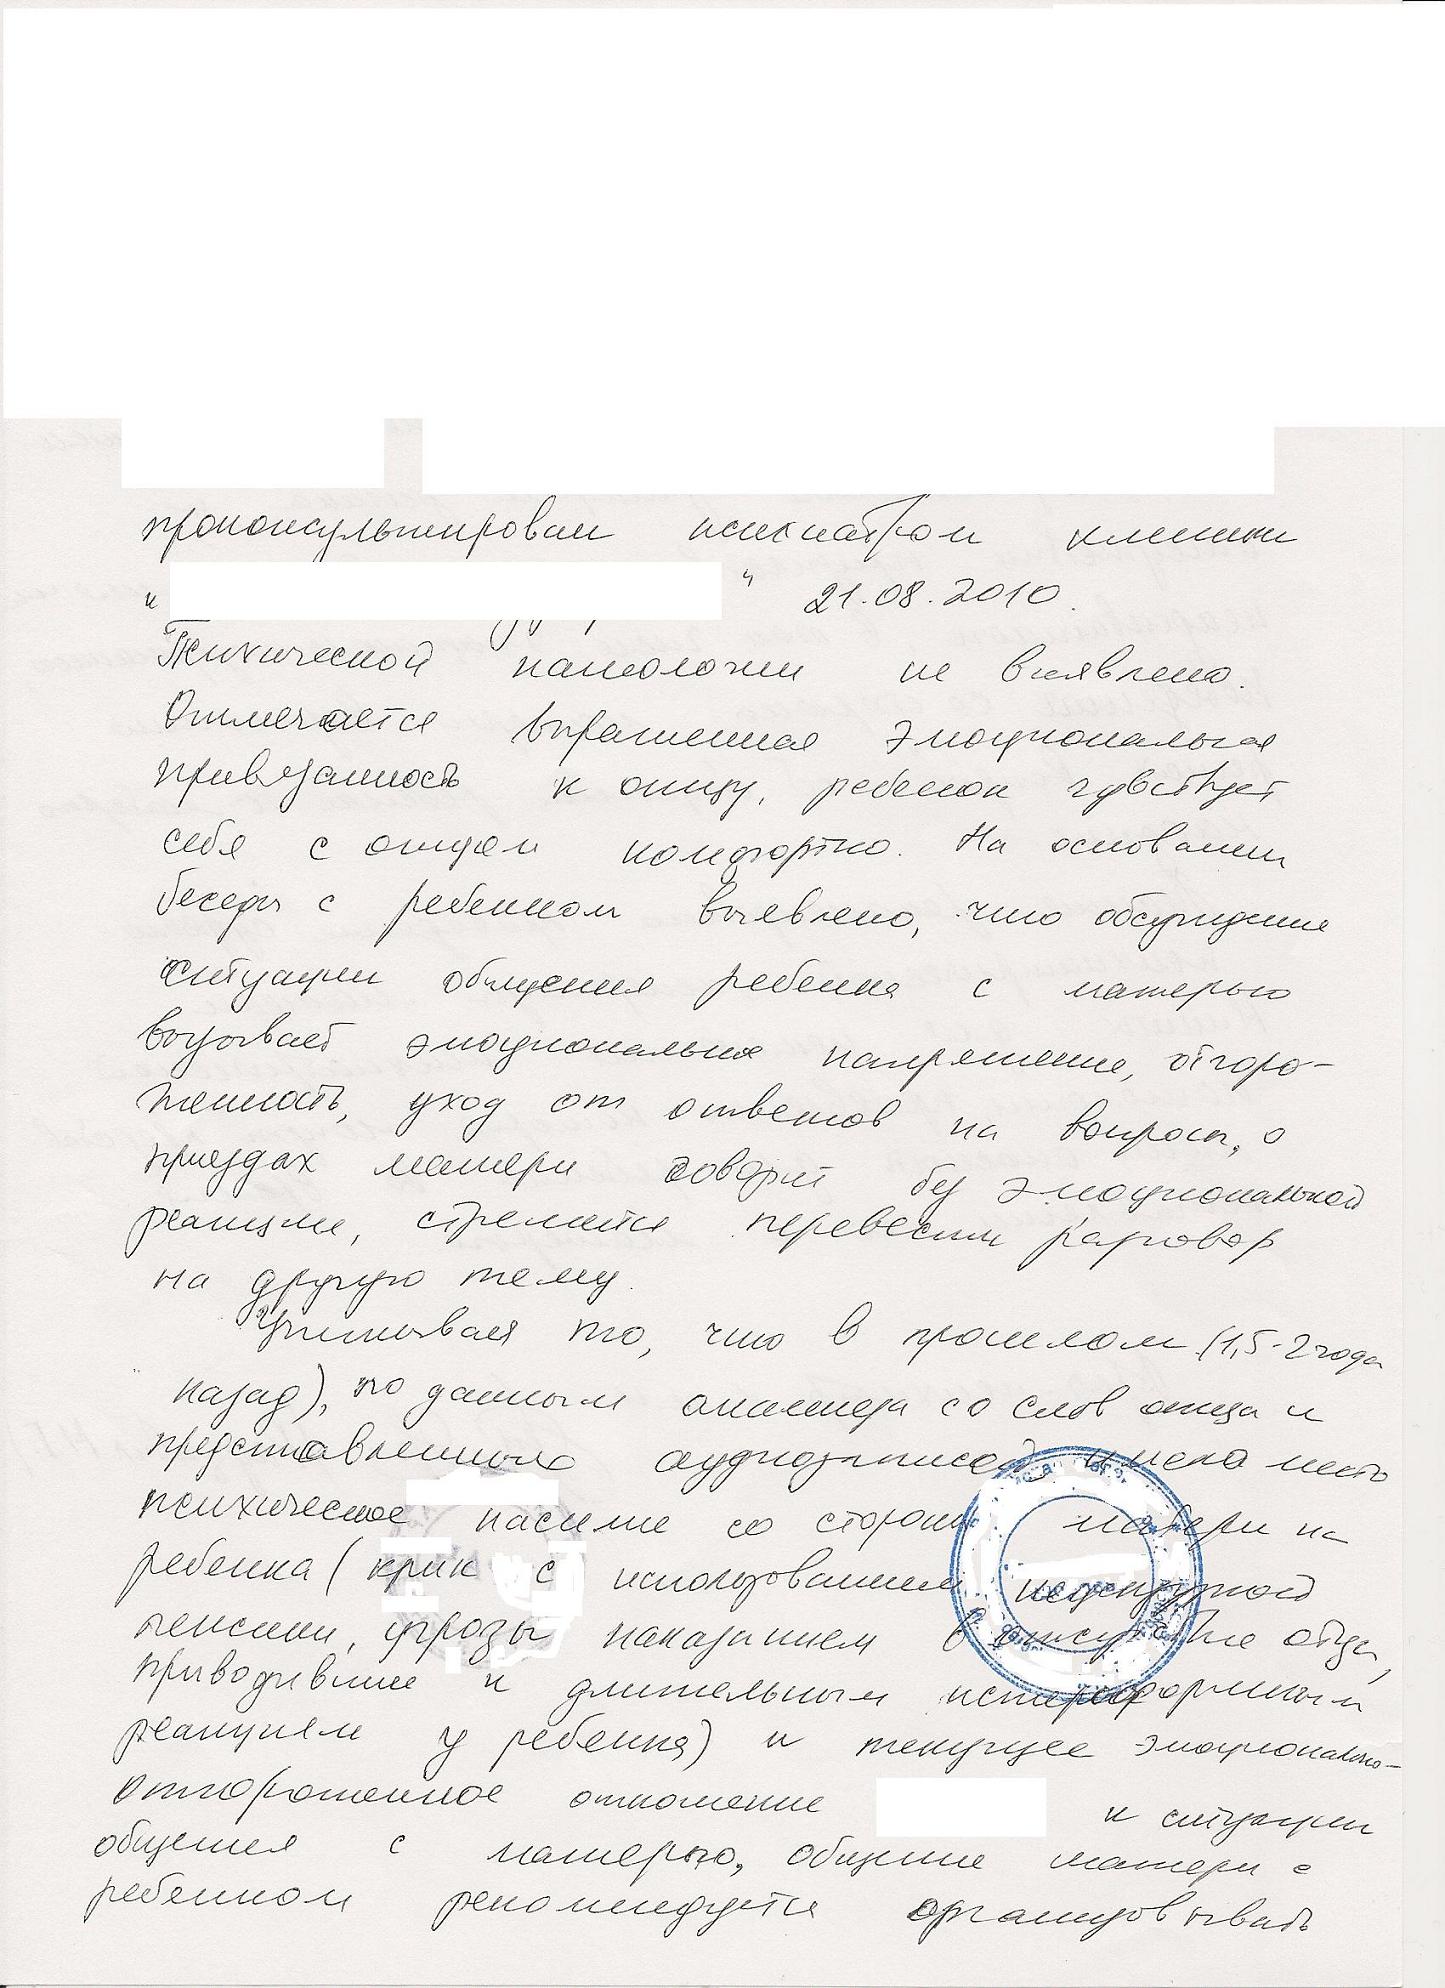 проконсультирован психиатром клиники
" " 21.08.2010.
Психической патологии не выявлено.
Отмечается выраженная эмоциональная
привязанность к отцу, ребенок чувствует
себя с отцом комфортно. На основании
беседы с ребенком выявлено, что обсуждение
ситуации общения ребенка с матерью
вызывает эмоциональное напряжение, отгоро-
женность, уход от ответов на вопросы, о
приездах матери говорит без эмоциональной
реакции, стремится перевести разговор
на другую тему.
Учитывая то, что в прошлом (1,5-2 года
назад), по данным анамнеза со слов отца и
представленных аудиозаписей имело место
психическое насилие со стороны матери на
ребенка (крик с использованием нецензурной
лексики, угрозы наказанием в отсутствие отца,
приводившие к длительным истероформным
реакциям у ребенка) и текущее эмоционально-
отгороженное отношение к ситуации
общения с матерью, общение матери с
ребенком рекомендуется организовывать